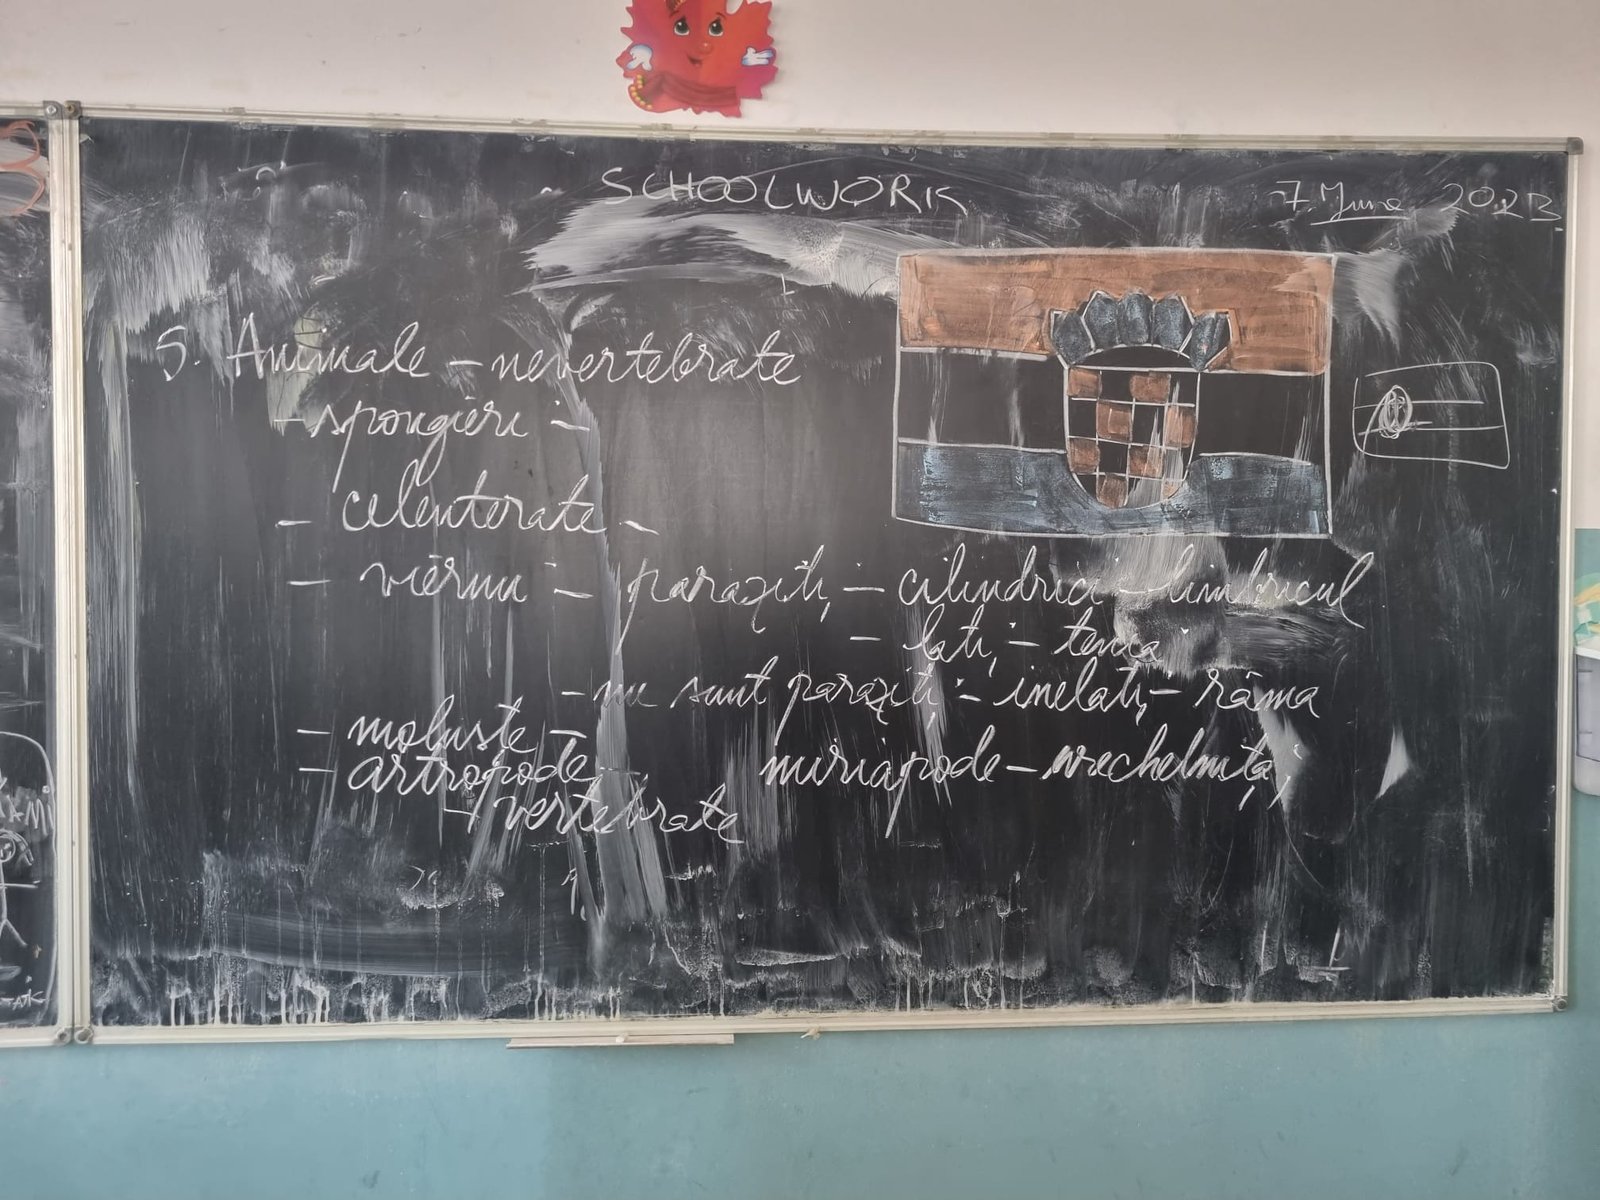 SCHOOLWORK
7 June 2023
5. Animale - nevertebrate
- spongieri -
- celenterate -
- viermi - paraziți - cilindrici - limbricul
- lați - tenia
- nu sunt paraziți - inelați - râma
- moluște -
- artropode - miriapode - urechelniță;
- vertebrate